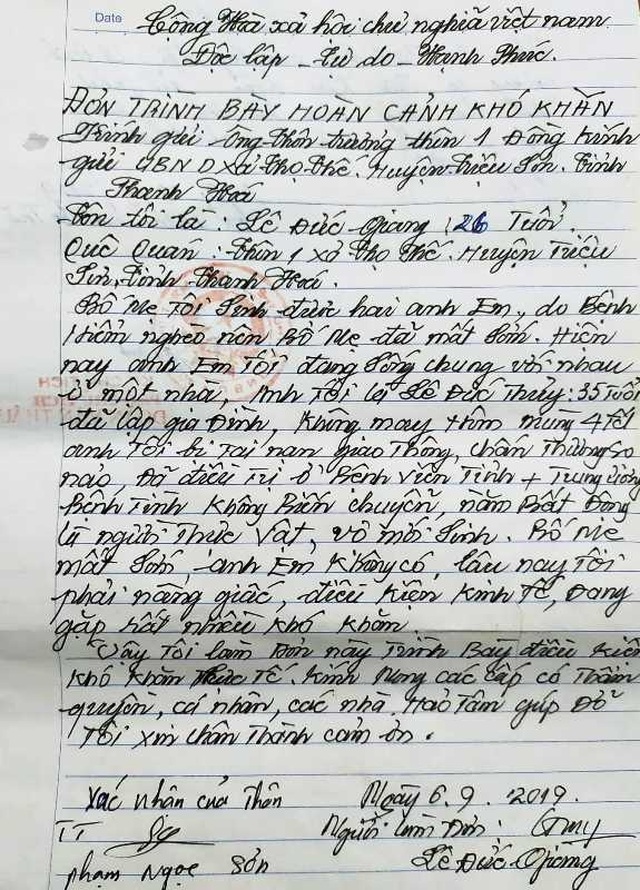 Date
Cộng Hòa xã hội chủ nghĩa việt nam
Độc lập - tự do - Hạnh Phúc.
ĐƠN TRÌNH BÀY HOÀN CẢNH KHÓ KHĂN
Kính gửi ông thôn trưởng thôn 1 Đồng Kinh
gửi UBND xã thọ thế. Huyện triệu sơn. tỉnh
Thanh Hoá
tên tôi là : Lê Đức Giang 26 Tuổi.
Quê Quán : thôn 1 xã thọ thế. Huyện Triệu
Sơn, tỉnh thanh Hoá.
Bố Mẹ Tôi Sinh được hai anh Em, do Bệnh
Hiểm nghèo nên Bố Mẹ đã mất Sớm. Hiện
nay anh Em Tôi đang Sống chung với nhau
ở một nhà, Anh Tôi là Lê Đức Thủy : 35 Tuổi
đã lập gia Đình, Không may hôm mùng 4 tết
anh Tôi bị Tai nạn giao Thông, chấn Thương sọ
não, Đã điều Trị ở Bệnh Viện Tỉnh + Trung ương
Bệnh Tình Không Biến chuyển, nằm Bất Động
là người Thực Vật, vợ mới Sinh. Bố Mẹ
mất Sớm, anh Em Không có, lâu nay Tôi
phải nâng giấc, điều Kiện Kinh Tế, Đang
gặp Rất nhiều Khó Khăn
Vậy Tôi làm Đơn này Trình Bày điều Kiện
Khó Khăn Thực Tế. Kính mong các cấp có Thẩm
quyền, cá nhân, các nhà Hảo Tâm giúp Đỡ
Tôi xin chân Thành cảm ơn.
Xác nhận của Thôn Ngày 6.9.2019.
TT Người làm Đơn :
phạm Ngọc Sơn Lê Đức Giang